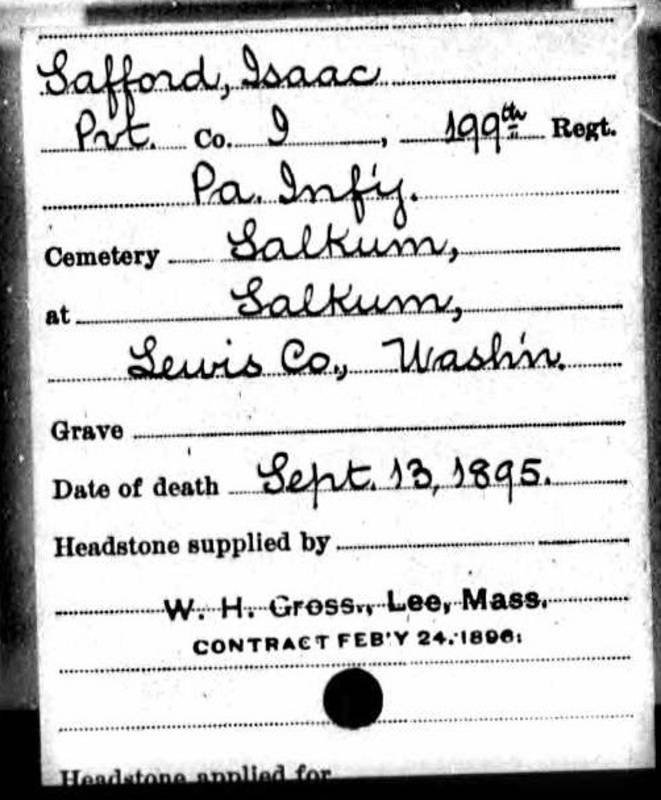 Safford, Isaac
Pvt. Co. I, 199th Regt.
Pa. Inf'y.
Cemetery Salkum,
at Salkum,
Lewis Co., Wash'n.
Grave
Date of death Sept. 13, 1895.
Headstone supplied by
W. H. Gross., Lee, Mass.
CONTRACT FEB'Y 24, 1896.
Headstone applied for